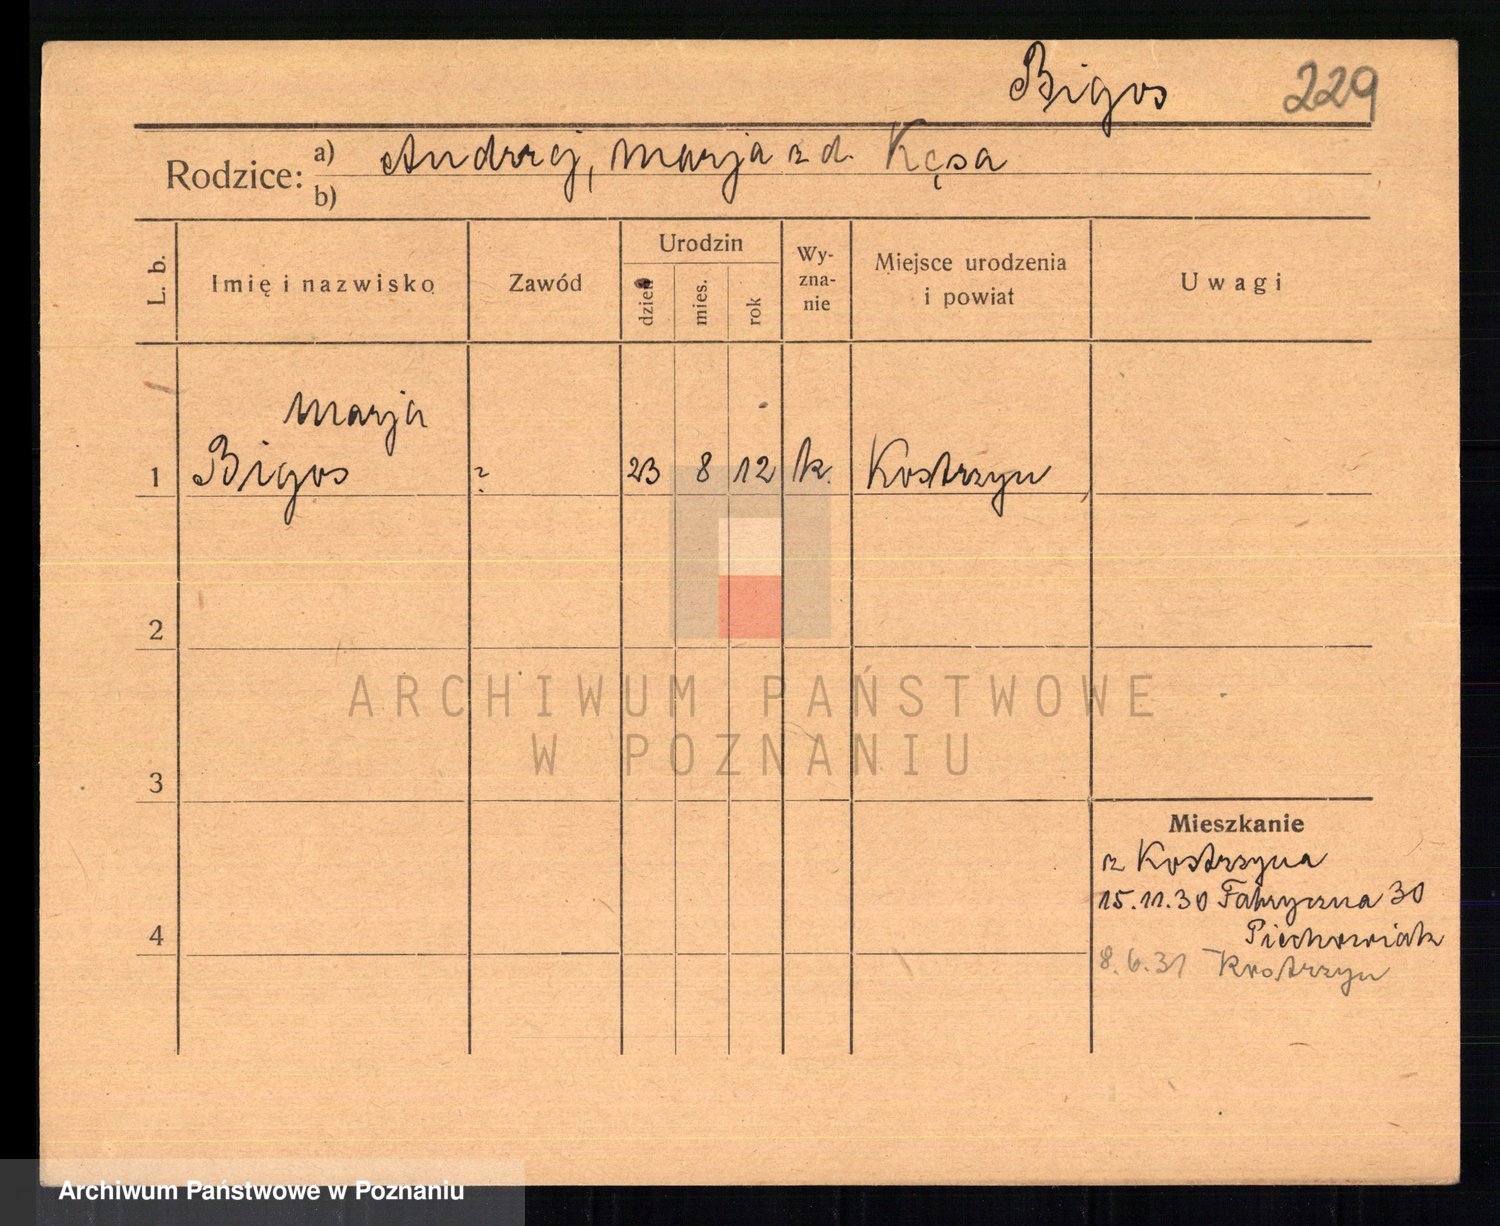 Bigos 229
Rodzice: a) Andrzej, Marja z d. Kęsa
b)
L. b. Imię i nazwisko Zawód Urodzin dzień mies. rok Wy-zna-nie Miejsce urodzenia i powiat Uwagi
Marja
1 Bigos ? 23 8 12 k. Kostrzyn
2
3
4
Mieszkanie
z Kostrzyna
15.11.30 Fabryczna 30
Piechowiak
8.6.31 Kostrzyn
ARCHIWUM PAŃSTWOWE
W POZNANIU
Archiwum Państwowe w Poznaniu